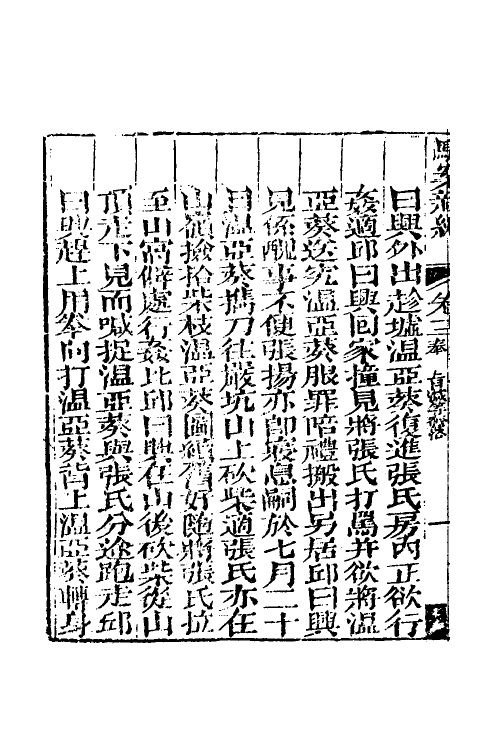 駁案新編 卷二奏
曰興外出趁墟溫亞葵復進張氏房內正欲行
姦適邱曰興回家撞見將張氏打罵并欲將溫
亞葵送究溫亞葵服罪賠禮搬出另居邱曰興
見係醜事不便張揚亦卽寢息嗣於七月二十
日溫亞葵攜刀往嚴坑山上砍柴適張氏亦在
山嶺撿拾柴枝溫亞葵圖續舊好隨將張氏拉
至山窩僻處行姦比邱曰興在山後砍柴從山
頂走下見而喊捉溫亞葵與張氏分途跑走邱
曰興趕上用拳向打溫亞葵背上溫亞葵轉身